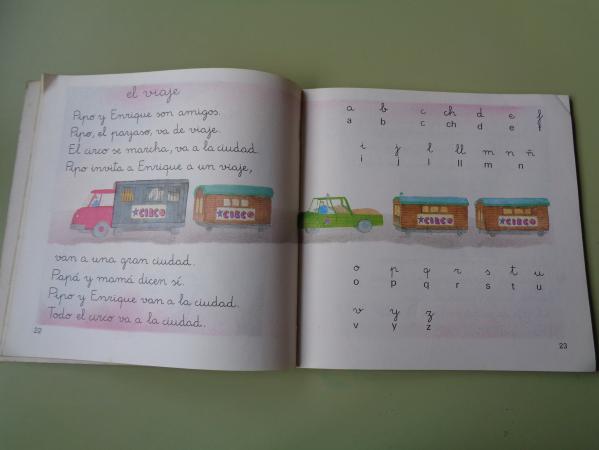 el viaje
Pipo y Enrique son amigos.
Pipo, el payaso, va de viaje.
El circo se marcha, va a la ciudad.
Pipo invita a Enrique a un viaje,
CIRCO
CIRCO
van a una gran ciudad.
Papá y mamá dicen sí.
Pipo y Enrique van a la ciudad.
Todo el circo va a la ciudad.
22
a b c ch d e f
a b c ch d e f
i j l ll m n ñ
i j l ll m n
CIRCO
CIRCO
o p q r s t u
o p q r s t u
v y z
v y z
23